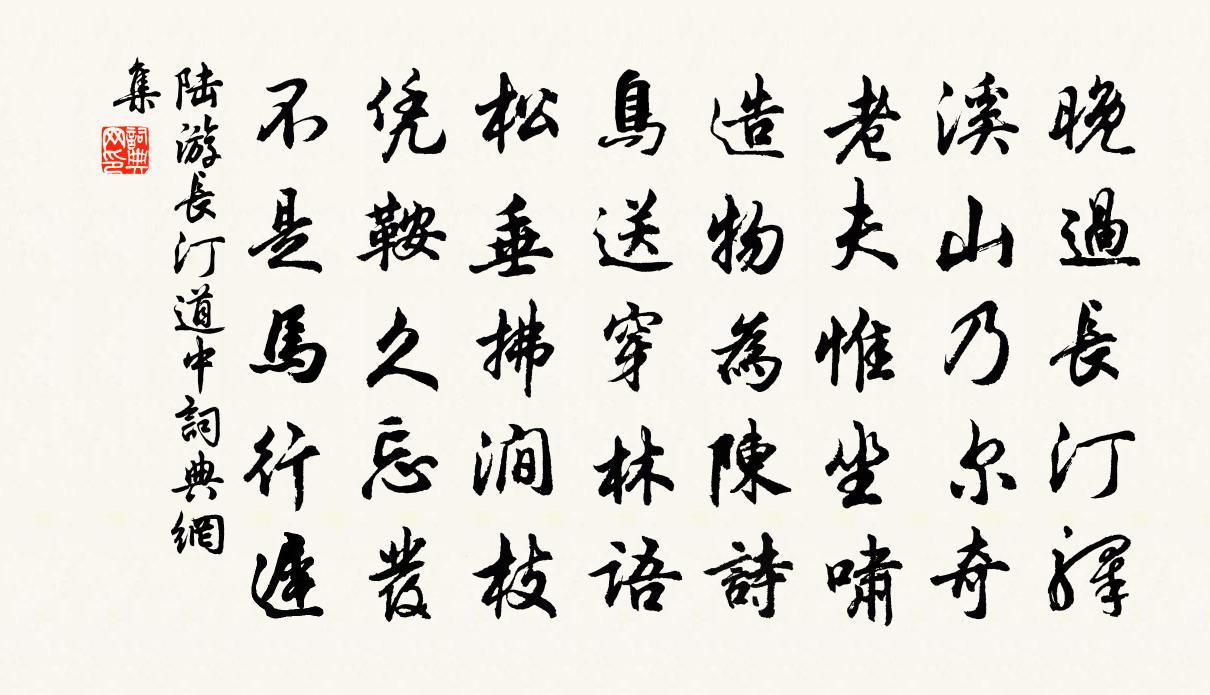 晚過長汀驛
溪山乃尔奇
老夫惟坐嘯
造物為陳詩
鳥送穿林語
松垂拂澗枝
凭鞍久忘發
不是馬行遲
陆游長汀道中詞典網
集
詞典
网印